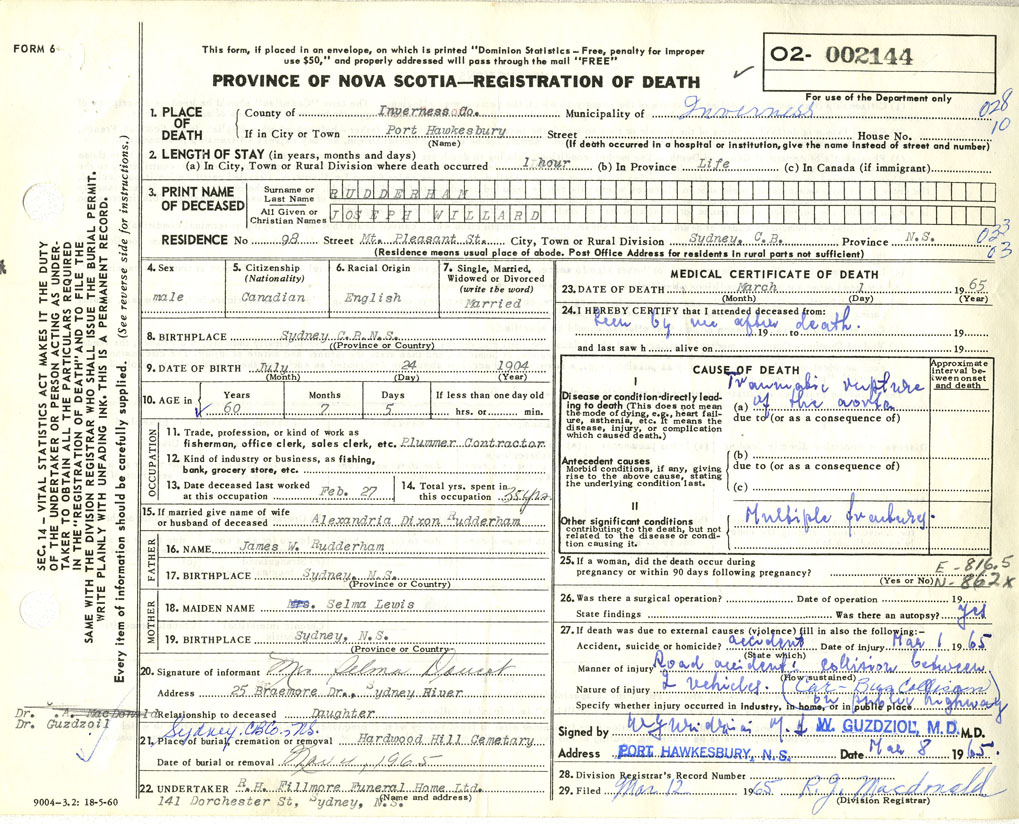 FORM 6
This form, if placed in an envelope, on which is printed "Dominion Statistics – Free, penalty for improper
use $50," and properly addressed will pass through the mail "FREE"
PROVINCE OF NOVA SCOTIA—REGISTRATION OF DEATH
O2- 002144
For use of the Department only
028
10
1. PLACE OF DEATH
County of Inverness Co. Municipality of Inverness
If in City or Town Port Hawkesbury Street House No.
(Name) (If death occurred in a hospital or institution, give the name instead of street and number)
2. LENGTH OF STAY (in years, months and days)
(a) In City, Town or Rural Division where death occurred 1 hour (b) In Province Life (c) In Canada (if immigrant)
3. PRINT NAME OF DECEASED
Surname or Last Name RUDDERHAM
All Given or Christian Names JOSEPH WILLARD
RESIDENCE No 98 Street Mt. Pleasant St. City, Town or Rural Division Sydney, C.B. Province N.S.
(Residence means usual place of abode. Post Office Address for residents in rural parts not sufficient)
023
03
4. Sex
male
5. Citizenship
(Nationality)
Canadian
6. Racial Origin
English
7. Single, Married, Widowed or Divorced
(write the word)
Married
8. BIRTHPLACE Sydney C.B.N.S.
(Province or Country)
9. DATE OF BIRTH July 24 1904
(Month) (Day) (Year)
10. AGE in Years Months Days If less than one day old
60 7 5 hrs. or min.
OCCUPATION
11. Trade, profession, or kind of work as
fisherman, office clerk, sales clerk, etc. Plummer Contractor
12. Kind of industry or business, as fishing,
bank, grocery store, etc.
13. Date deceased last worked
at this occupation Feb. 27
14. Total yrs. spent in
this occupation
15. If married give name of wife
or husband of deceased Alexandria Dixon Rudderham
FATHER
16. NAME James W. Rudderham
17. BIRTHPLACE Sydney, N.S.
(Province or Country)
MOTHER
18. MAIDEN NAME Mrs. Selma Lewis
19. BIRTHPLACE Sydney, N.S.
(Province or Country)
20. Signature of informant Mrs Selma Doucet
Address 25 Braemore Dr., Sydney River
Relationship to deceased Daughter
Sydney, C.B.Co., N.S.
21. Place of burial, cremation or removal Hardwood Hill Cemetary
Date of burial or removal 1965
22. UNDERTAKER R.H. Fillmore Funeral Home Ltd.
(Name and address)
141 Dorchester St, Sydney, N.S.
9004-3.2: 18-5-60
Dr. .A. MacDonald
Dr. Guzdzoil
SEC. 14 – VITAL STATISTICS ACT MAKES IT THE DUTY
OF THE UNDERTAKER OR PERSON ACTING AS UNDER-
TAKER TO OBTAIN ALL THE PARTICULARS REQUIRED
IN THE "REGISTRATION OF DEATH" AND TO FILE THE
SAME WITH THE DIVISION REGISTRAR WHO SHALL ISSUE THE BURIAL PERMIT.
WRITE PLAINLY WITH UNFADING INK. THIS IS A PERMANENT RECORD.
Every item of information should be carefully supplied. (See reverse side for instructions.)
MEDICAL CERTIFICATE OF DEATH
23. DATE OF DEATH March 1 1965
(Month) (Day) (Year)
24. I HEREBY CERTIFY that I attended deceased from:
Seen by me after death.
19 to 19
and last saw h alive on 19
CAUSE OF DEATH
Approximate interval between onset and death
I
Disease or condition directly lead-
ing to death (This does not mean
the mode of dying, e.g., heart failure,
asthenia, etc. It means the
disease, injury, or complication
which caused death.)
(a) Traumatic rupture
of the aorta
due to (or as a consequence of)
Antecedent causes
Morbid conditions, if any, giving
rise to the above cause, stating
the underlying condition last.
(b)
due to (or as a consequence of)
(c)
II
Other significant conditions
contributing to the death, but not
related to the disease or condi-
tion causing it.
Multiple
25. If a woman, did the death occur during
pregnancy or within 90 days following pregnancy?
(Yes or No)
E - 816.5
N - 862x
26. Was there a surgical operation? Date of operation 19
State findings Was there an autopsy? Yes
27. If death was due to external causes (violence) fill in also the following:-
Accident, suicide or homicide? accident Date of injury Mar 1 1965
(State which)
Manner of injury Road accident: collision between
(How sustained)
Nature of injury 2 vehicles. (Car - Bus Collision)
on public highway
Specify whether injury occurred in industry, in home, or in public place
Signed by W. GUZDZIOL, M.D. M.D.
Address PORT HAWKESBURY, N.S. Date Mar 8 1965.
28. Division Registrar's Record Number
29. Filed Mar 12 1965 R.J. Macdonald
(Division Registrar)